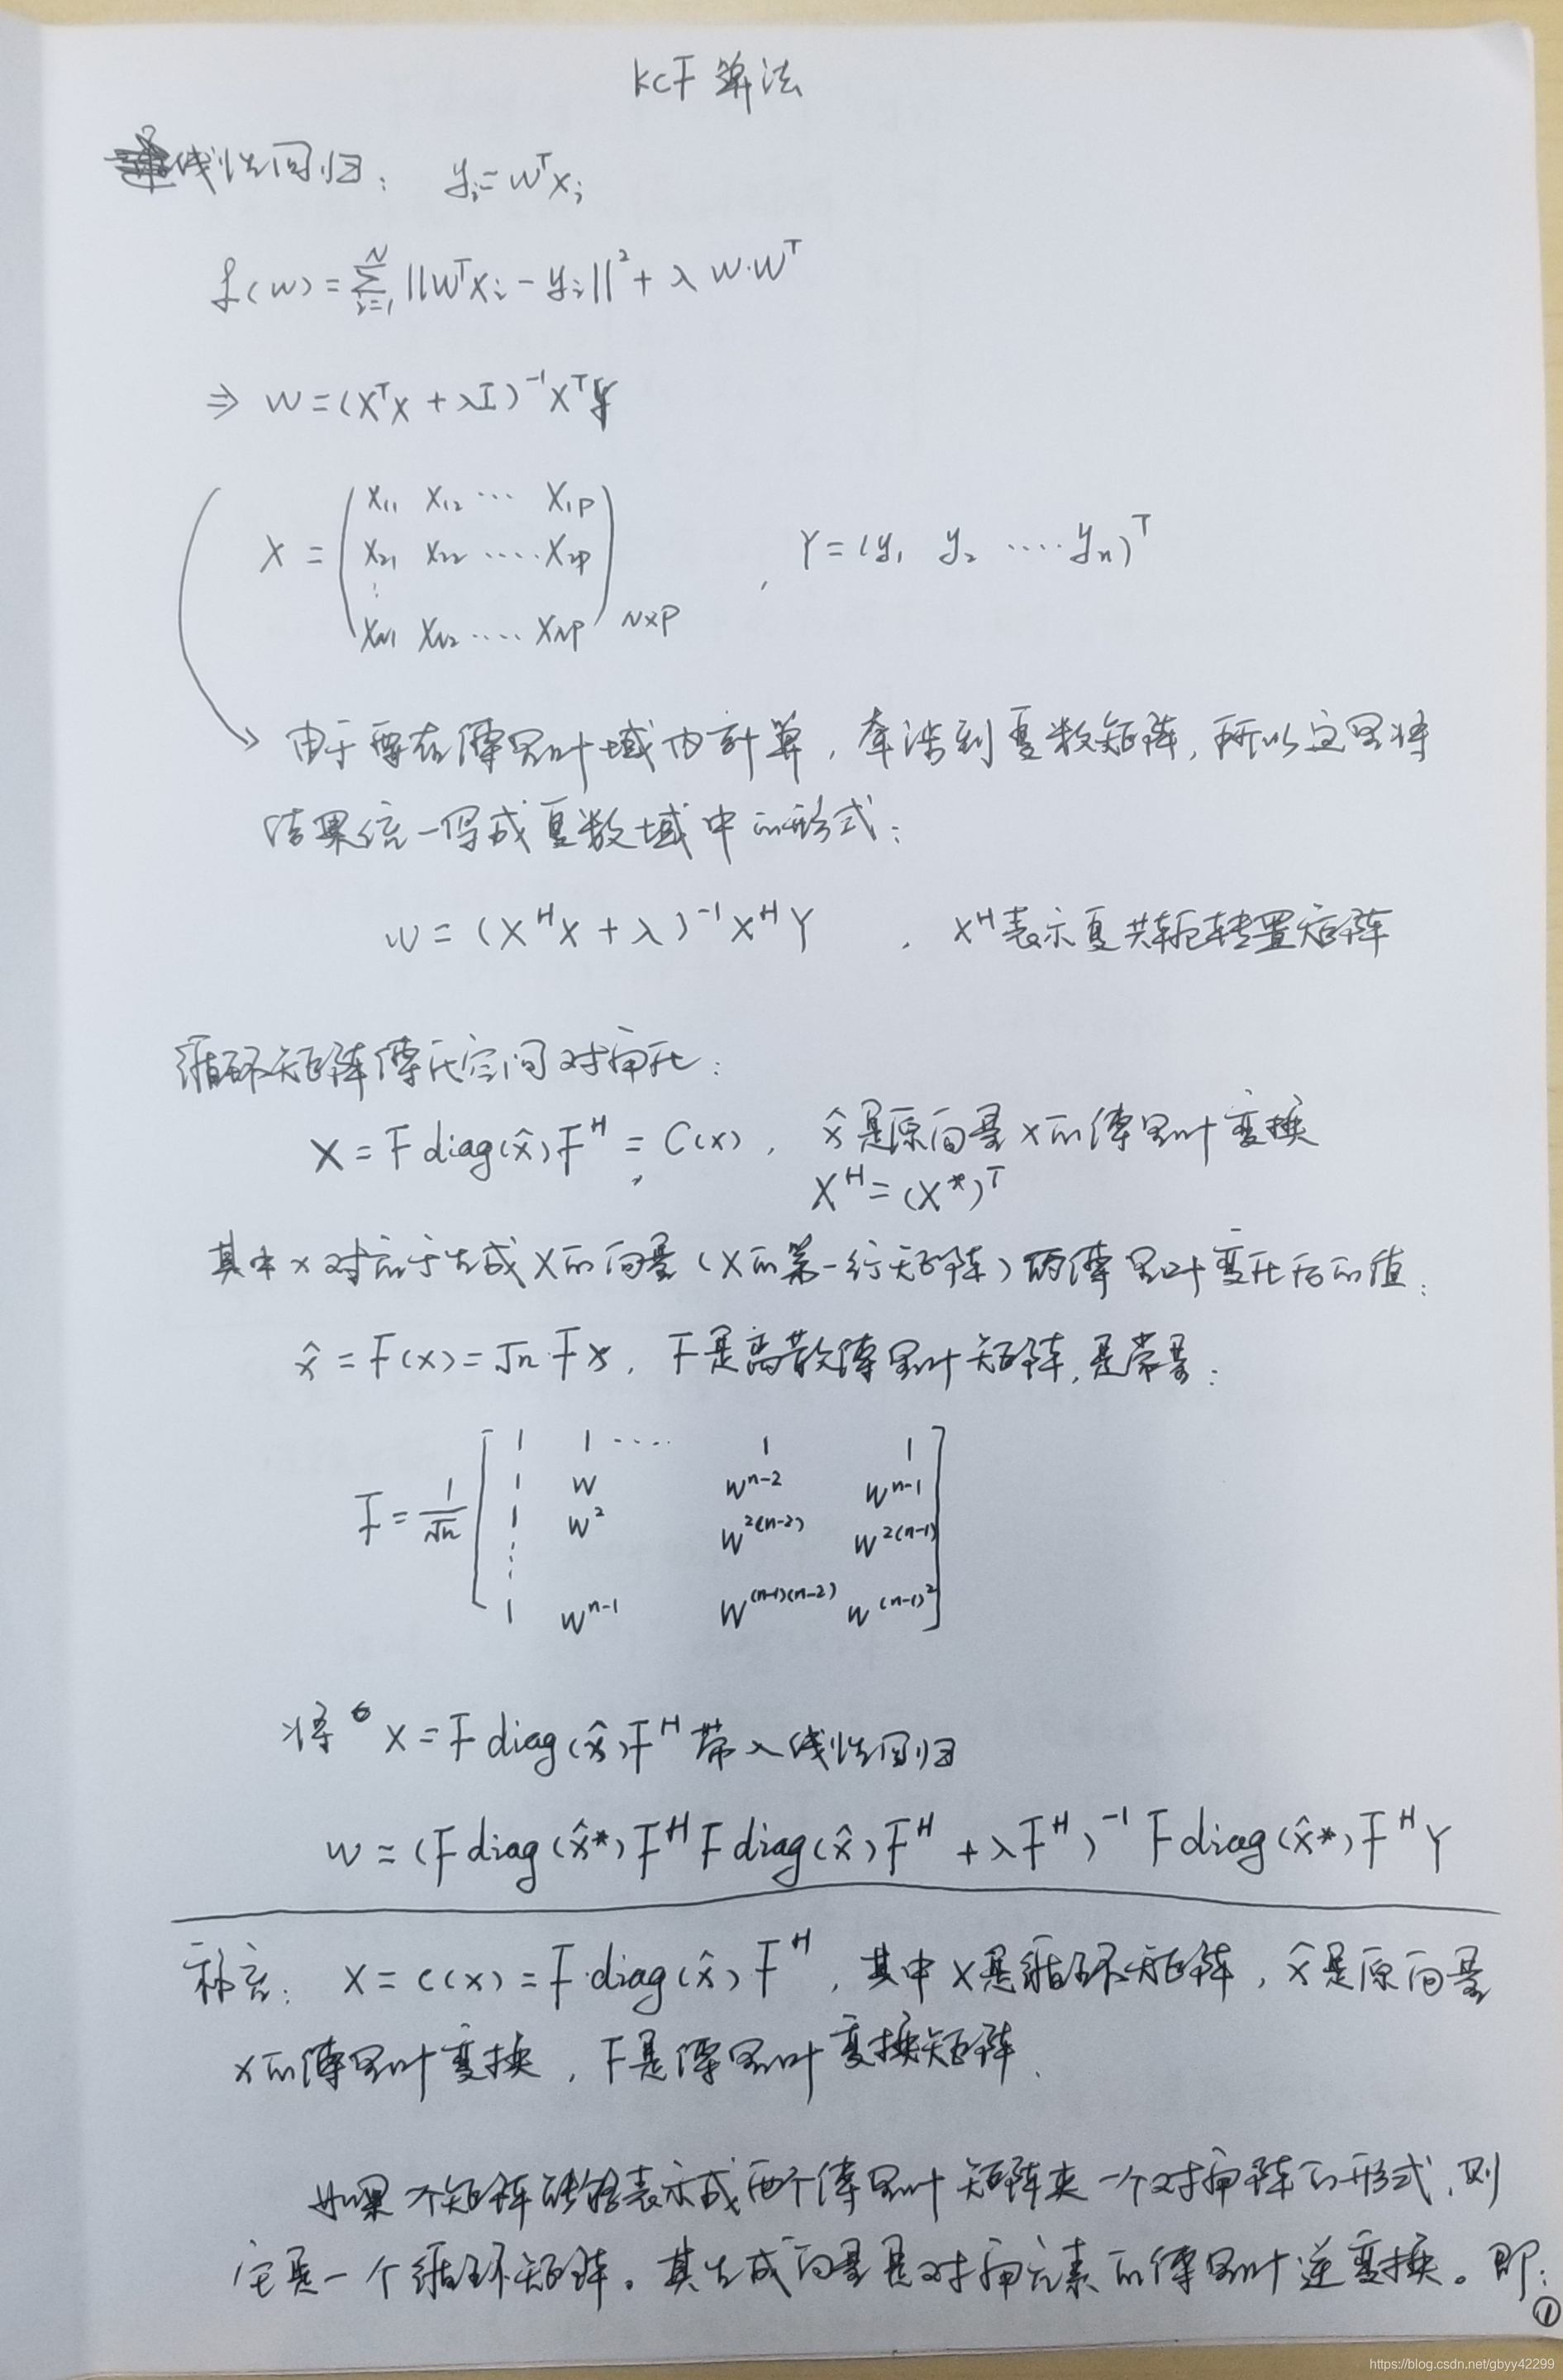 KCF 算法
线性回归: yᵢ=wᵀxᵢ
f(w)=∑ᵢ₌₁ᴺ||wᵀxᵢ-yᵢ||²+λw·wᵀ
⇒ w=(XᵀX+λI)⁻¹Xᵀy
X = ( x₁₁ x₁₂ ⋯ x₁p
x₂₁ x₂₂ ⋯⋯ x₂p
⋮
x_N1 x_N2 ⋯⋯ x_Np )_N×P , Y=(y₁ y₂ ⋯⋯ yₙ)ᵀ
由于要在傅里叶域内计算, 牵涉到复数矩阵, 所以这里将
结果统一写成复数域中的形式:
w = (XᴴX+λ)⁻¹XᴴY , Xᴴ表示复共轭转置矩阵
循环矩阵傅氏空间对角化:
X = F diag(x̂)Fᴴ = C(x), x̂是原向量x的傅里叶变换
Xᴴ=(X*)ᵀ
其中x对应于生成X的向量(X的第一行矩阵)的傅里叶变化后的值:
x̂ = F(x)=√n·Fx, F是离散傅里叶矩阵, 是常量:
F = 1/√n [ 1 1 ⋯⋯ 1 1
1 w wⁿ⁻² wⁿ⁻¹
1 w² w²⁽ⁿ⁻²⁾ w²⁽ⁿ⁻¹⁾
⋮
1 wⁿ⁻¹ w⁽ⁿ⁻¹⁾⁽ⁿ⁻²⁾ w^(n-1)² ]
将 X = F diag(x̂)Fᴴ 带入线性回归
w = (F diag(x̂*)FᴴF diag(x̂)Fᴴ+λFᴴ)⁻¹ F diag(x̂*)FᴴY
补充: X = C(x) = F·diag(x̂)Fᴴ, 其中X是循环矩阵, x̂是原向量
x的傅里叶变换, F是傅里叶变换矩阵.
如果个矩阵能够表示成两个傅里叶矩阵夹一个对角阵的形式, 则
它是一个循环矩阵。其生成向量是对角元素的傅里叶逆变换。即:
①
https://blog.csdn.net/gbyy42299